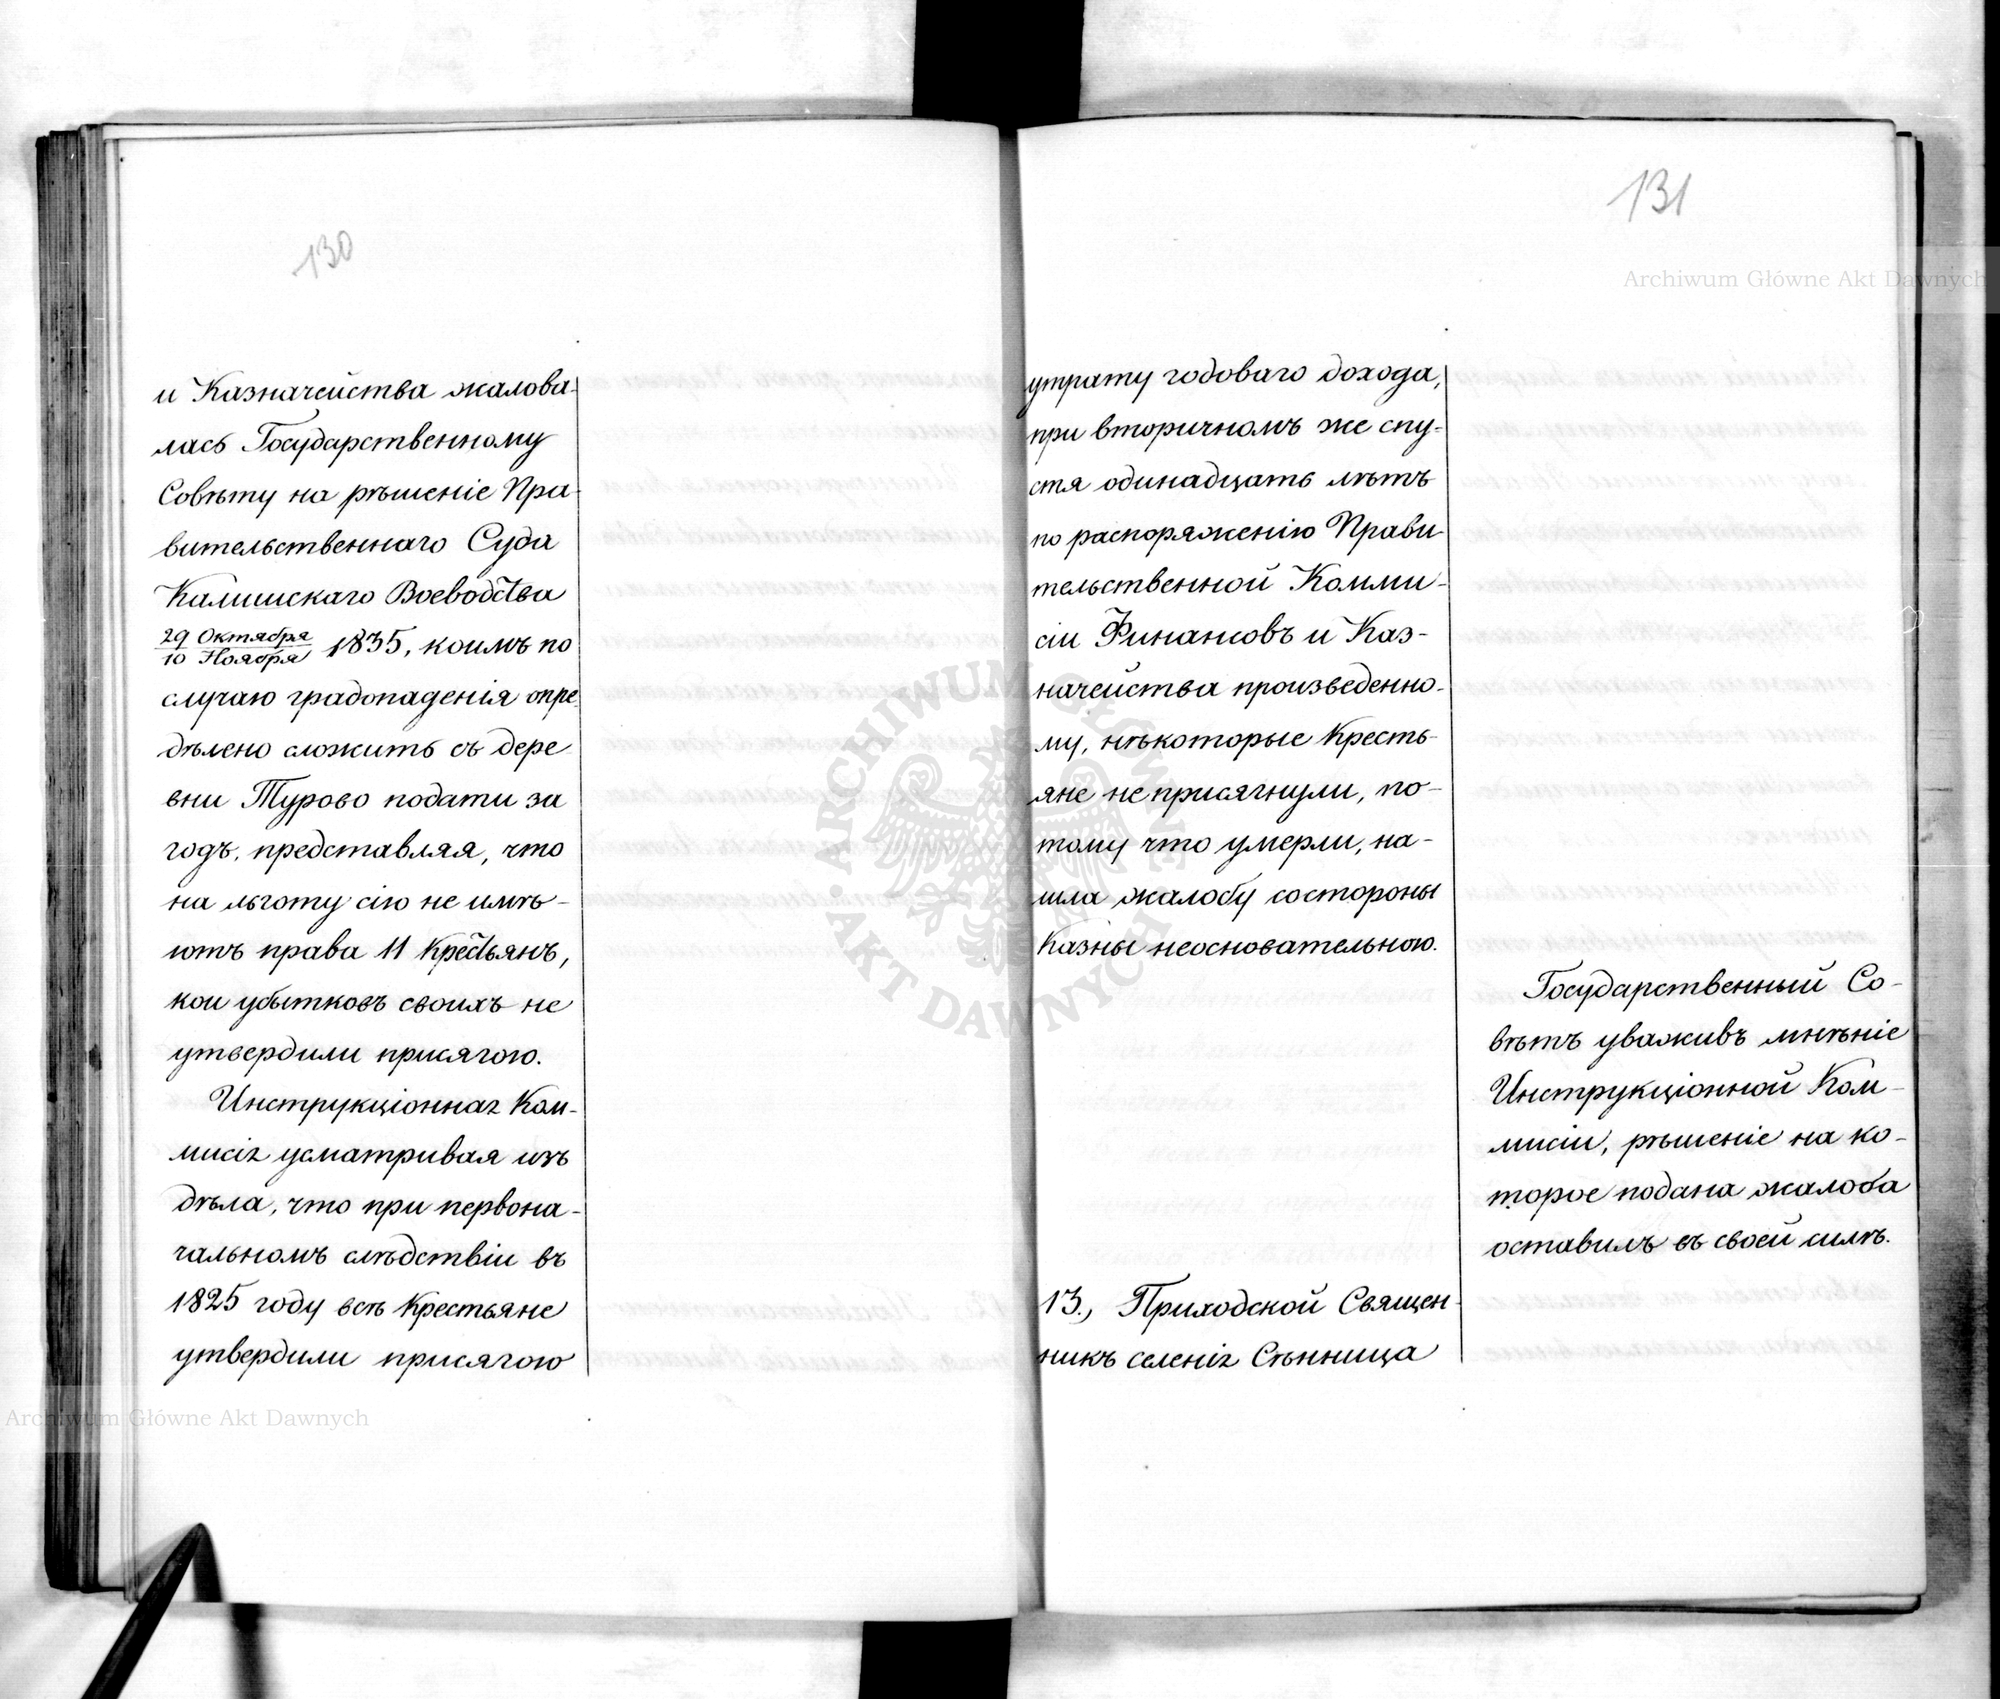 130
и Казначейства жалова-
лась Государственному
Совѣту на рѣшеніе Пра-
вительственнаго Суда
Калишскаго Воеводства
29 Октября / 10 Ноября 1835, коимъ по
случаю градопаденія опре-
дѣлено сложить съ дере
вни Турово подати за
годъ, представляя, что
на льготу сію не имѣ-
ютъ права 11 Крестьянъ,
кои убытковъ своихъ не
утвердили присягою.
Инструкціонная Ком-
мисія усматривая изъ
дѣла, что при первона-
чальномъ слѣдствіи въ
1825 году всѣ Крестьяне
утвердили присягою
131
утрату годоваго дохода,
при вторичномъ же спу-
стя одинадцать лѣтъ
по распоряженію Прави-
тельственной Комми-
сіи Финансовъ и Каз-
начейства произведенно-
му, нѣкоторые Кресть-
яне не присягнули, по-
тому что умерли, на-
шла жалобу состороны
Казны неосновательною.
Государственный Со-
вѣтъ уваживъ мнѣніе
Инструкціонной Ком-
мисіи, рѣшеніе на ко-
торое подана жалоба
оставилъ въ своей силѣ.
13., Приходской Священ-
никъ селенія Сѣнница
Archiwum Główne Akt Dawnych
Archiwum Główne Akt Dawnych
ARCHIWUM GŁÓWNE AKT DAWNYCH